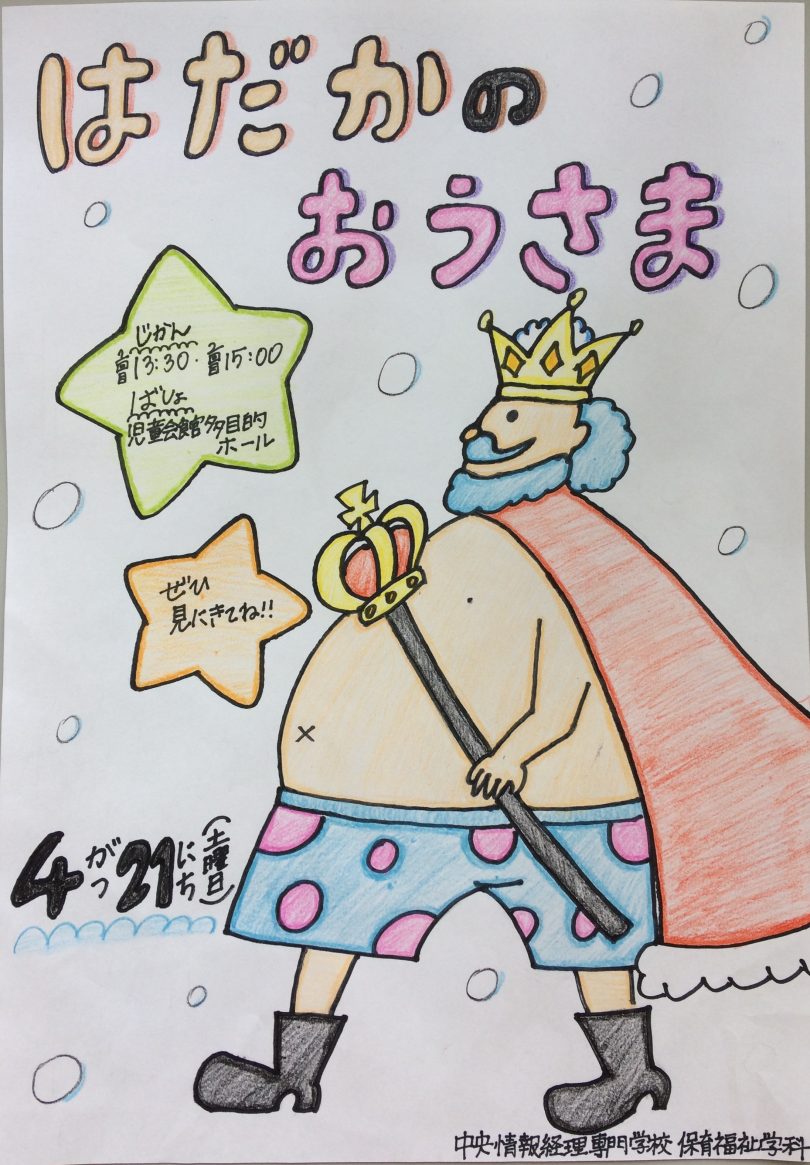 はだかの
おうさま
じかん
1回目13:30・2回目15:00
ばしょ
児童会館多目的
ホール
ぜひ
見にきてね!!
4がつ21にち(土曜日)
中央情報経理専門学校 保育福祉学科